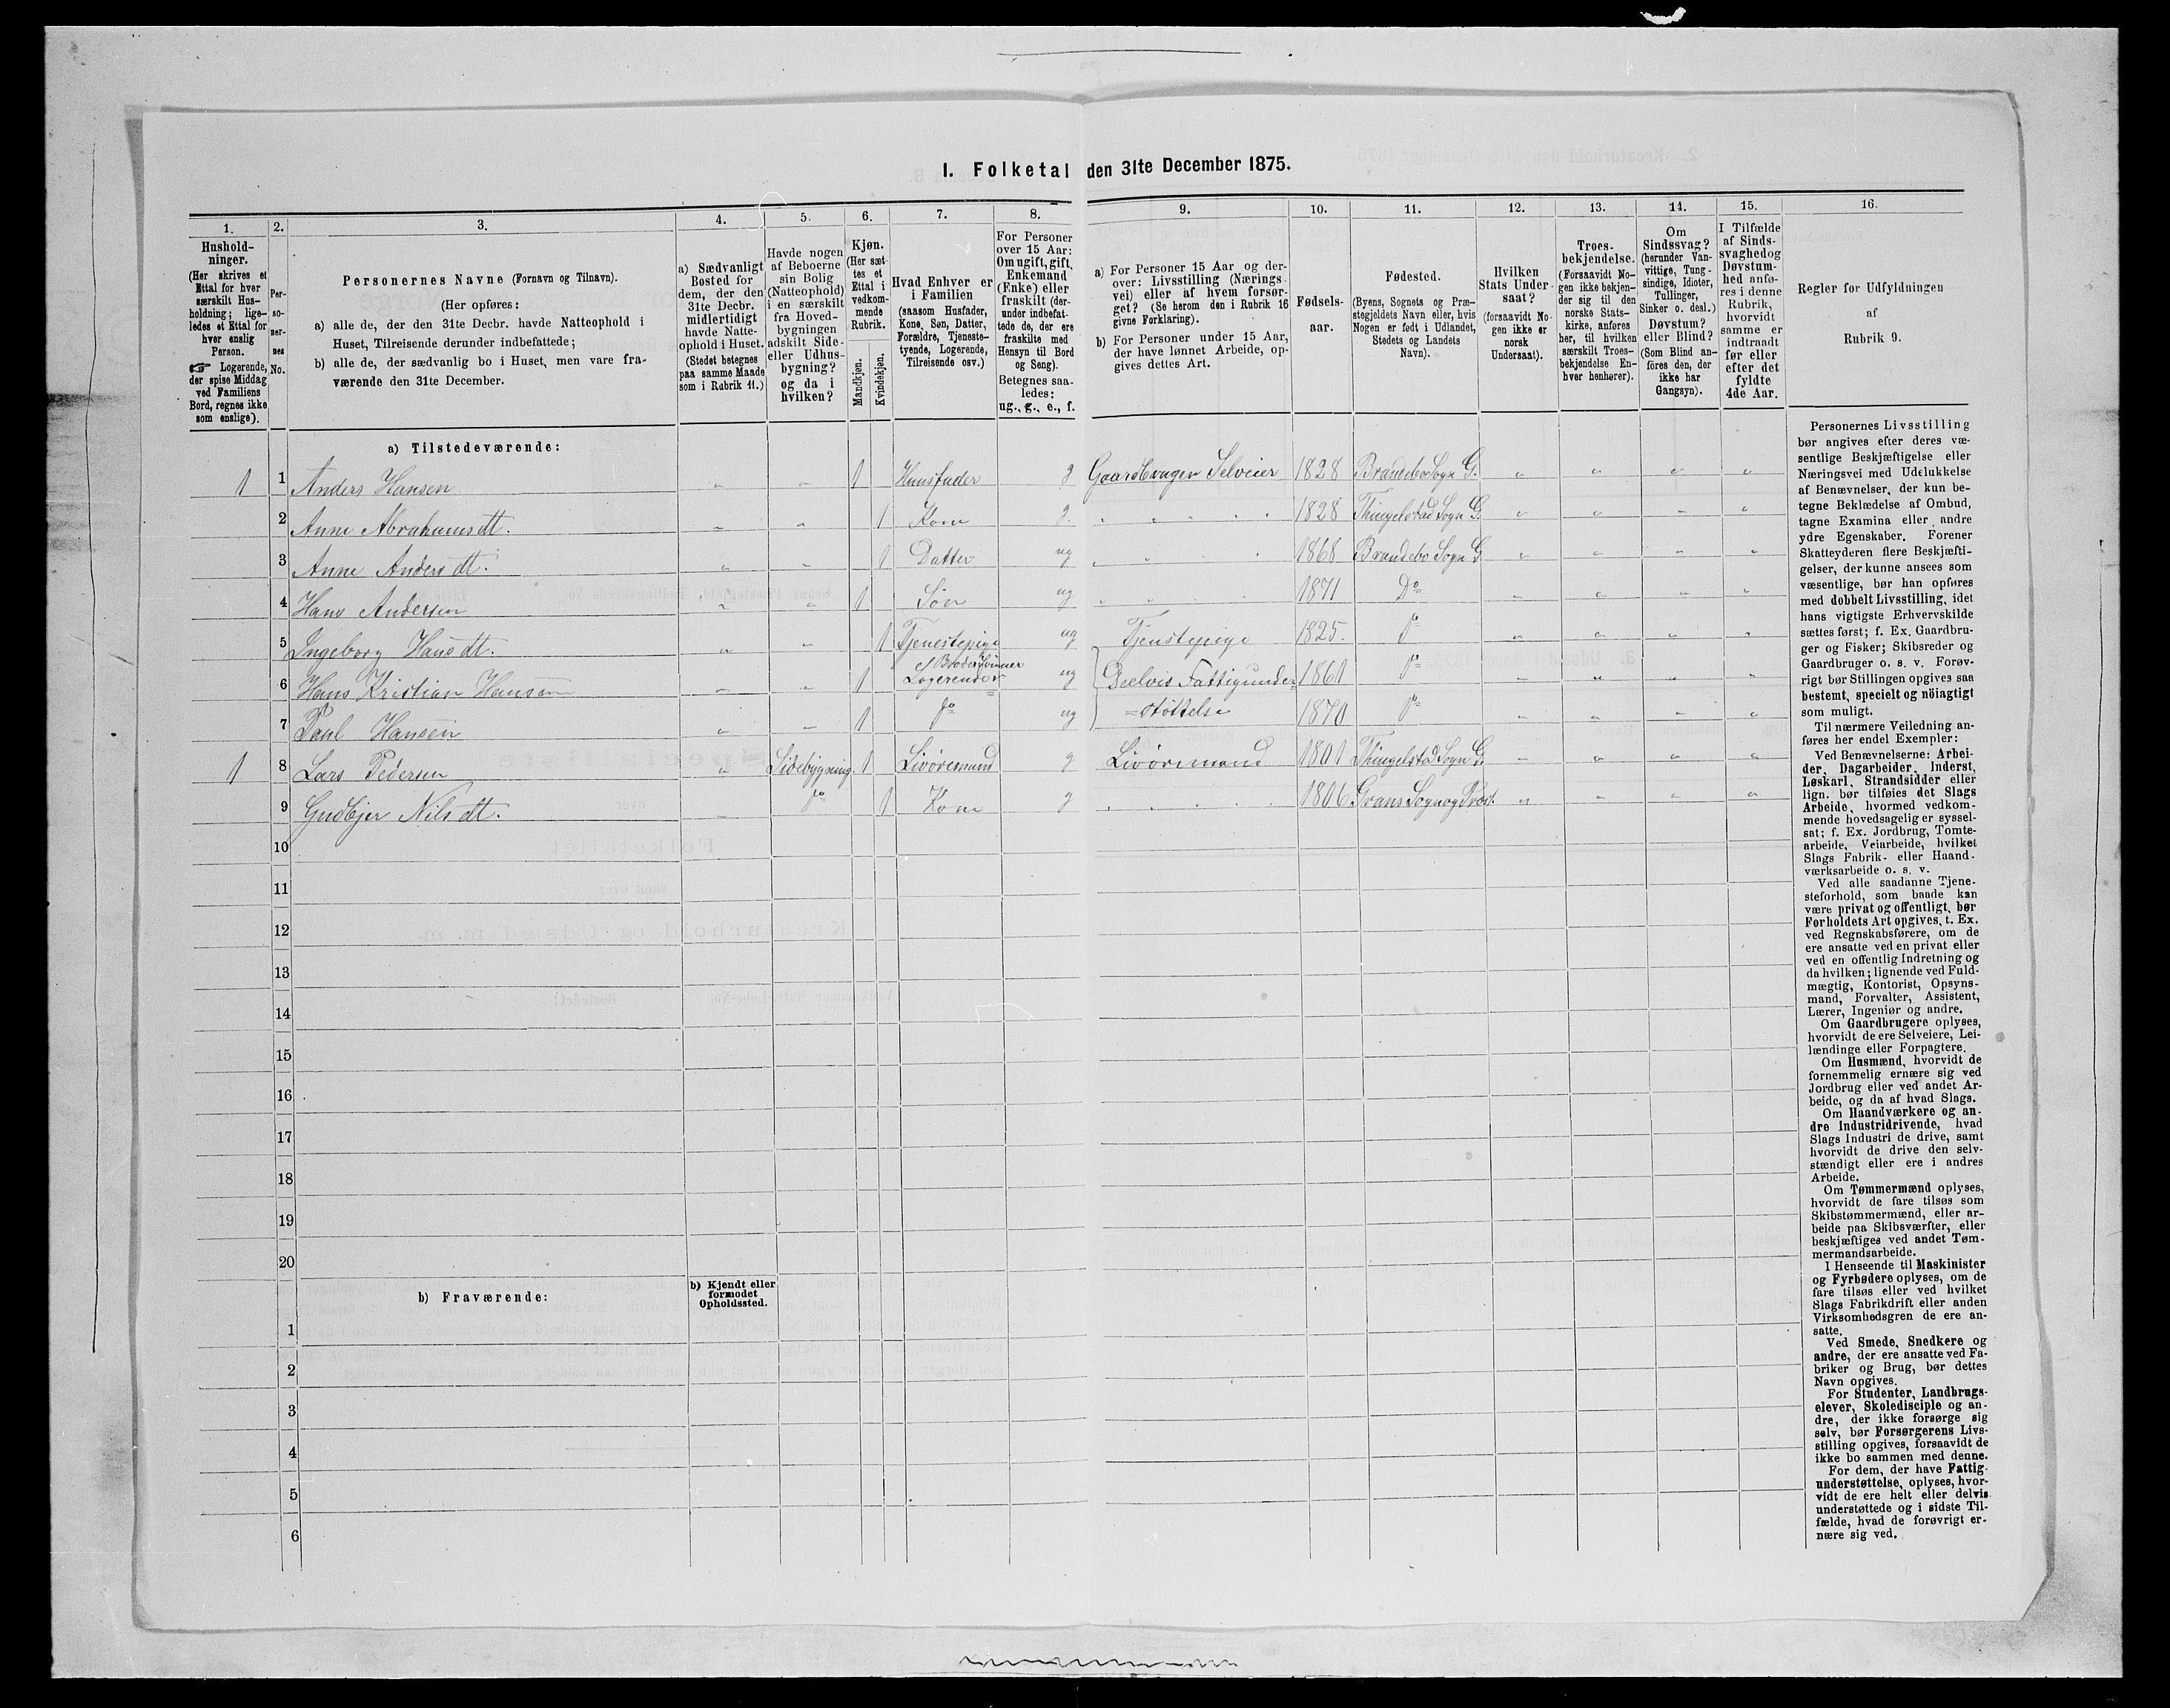 I. Folketal den 31te December 1875.
1. 2. 3. 4. 5. 6. 7. 8. 9. 10. 11. 12. 13. 14. 15. 16.
Hushold-
ninger.
(Her skrives et
Ettal for hver
særskilt Hus-
holdning; lige-
ledes et Ettal for
hver enslig
Person.
☞ Logerende,
der spise Middag
ved Familiens
Bord, regnes ikke
som enslige).
Per-
so-
ner-
nes
No.
Personernes Navne (Fornavn og Tilnavn).
(Her opføres:
a) alle de, der den 31te Decbr. havde Natteophold i
Huset, Tilreisende derunder indbefattede;
b) alle de, der sædvanlig bo i Huset, men vare fra-
værende den 31te December.
a) Sædvanligt
Bosted for
dem, der den
31te Decbr.
midlertidigt
havde Natte-
ophold i Huset.
(Stedet betegnes
paa samme Maade
som i Rubrik 11.)
Havde nogen
af Beboerne
sin Bolig
(Natteophold)
i en særskilt
fra Hoved-
bygningen
adskilt Side-
eller Udhus-
bygning?
og da i
hvilken?
Kjøn.
(Her sæt-
tes et
Ettal i
vedkom-
mende
Rubrik.
Mandkjøn.
Kvindekjøn.
Hvad Enhver er
i Familien
(saasom Husfader,
Kone, Søn, Datter,
Forældre, Tjeneste-
tyende, Logerende,
Tilreisende osv.)
For Personer
over 15 Aar:
Om ugift, gift,
Enkemand
(Enke) eller
fraskilt (der-
under indbefat-
tede de, der ere
fraskilte med
Hensyn til Bord
og Seng).
Betegnes saa-
ledes:
ug., g., e., f.
a) For Personer 15 Aar og der-
over: Livsstilling (Nærings-
vei) eller af hvem forsør-
get? (Se herom den i Rubrik 16
givne Forklaring).
b) For Personer under 15 Aar,
der have lønnet Arbeide, op-
gives dettes Art.
Fødsels-
aar.
Fødested.
(Byens, Sognets og Præ-
stegjeldets Navn eller, hvis
Nogen er født i Udlandet,
Stedets og Landets
Navn).
Hvilken
Stats Under-
saat?
(forsaavidt No-
gen ikke er
norsk
Undersaat).
Troes-
bekjendelse.
(Forsaavidt No-
gen ikke bekjen-
der sig til den
norske Stats-
kirke, anføres
her, til hvilken
særskilt Troes-
bekjendelse En-
hver henhører).
Om
Sindssvag?
(herunder Van-
vittige, Tung-
sindige, Idioter,
Tullinger,
Sinker o. desl.)
Døvstum?
eller Blind?
(Som Blind an-
føres den, der
ikke har
Gangsyn).
I Tilfælde
af Sinds-
svaghed og
Døvstum-
hed anfø-
res i denne
Rubrik,
hvorvidt
samme er
indtraadt
før eller
efter det
fyldte
4de Aar.
Regler for Udfyldningen
af
Rubrik 9.
a) Tilstedeværende:
1 1 Anders Hansen " " 1 Huusfader g Gaardbruger Selveier 1828 Brandebo Sogn G. " " " "
2 Anne Abrahamsdt. " " 1 Kone g. " " " " 1828 Thingelstad Sogn G. " " " "
3 Anne Andersdt. " " 1 Datter ug " " " 1868 Brandebo Sogn G " " " "
4 Hans Andersen " " 1 Søn ug " " " 1871 Do " " " "
5 Ingeborg Hansdt. " " 1 Tjenestepige ug Tjenstepige 1825. do " " " "
6 Hans Kristian Hansen " " 1 Brodersønner Logerender ug Deelvis Fattigunder- 1861 do " " " "
7 Paul Hansen " " 1 do ug =støttelse 1870 do " " " "
1 8 Lars Pedersen " Sidebygning. 1 Livøremand g Livøremand 1801 Thingelstad Sogn G. " " " "
9 Gudbjer Nilsdt. " do 1 Kone g " " " " 1806 Grans Sogn og Præst. " " " "
10
11
12
13
14
15
16
17
18
19
20
b) Fraværende:
b) Kjendt eller
formodet
Opholdssted.
1
2
3
4
5
6
Personernes Livsstilling
bør angives efter deres væ-
sentlige Beskjæftigelse eller
Næringsvei med Udelukkelse
af Benævnelser, der kun be-
tegne Beklædelse af Ombud,
tagne Examina eller andre
ydre Egenskaber. Forener
Skatteyderen flere Beskjæfti-
gelser, der kunne ansees som
væsentlige, bør han opføres
med dobbelt Livsstilling, idet
hans vigtigste Erhvervskilde
sættes først; f. Ex. Gaardbru-
ger og Fisker; Skibsreder og
Gaardbruger o. s. v. Forøv-
rigt bør Stillingen opgives saa
bestemt, specielt og nöiagtigt
som muligt.
Til nærmere Veiledning an-
føres her endel Exempler:
Ved Benævnelserne: Arbei-
der, Dagarbeider, Inderst,
Løskarl, Strandsidder eller
lign. bør tilføies det Slags
Arbeide, hvormed vedkom-
mende hovedsagelig er syssel-
sat; f. Ex. Jordbrug, Tomte-
arbeide, Veiarbeide, hvilket
Slags Fabrik- eller Haand-
værksarbeide o. s. v.
Ved alle saadanne Tjene-
steforhold, som baade kan
være privat og offentligt, bør
Forholdets Art opgives, t. Ex.
ved Regnskabsførere, om de
ere ansatte ved en privat eller
ved en offentlig Indretning og
da hvilken; lignende ved Fuld-
mægtig, Kontorist, Opsyns-
mand, Forvalter, Assistent,
Lærer, Ingeniør og andre.
Om Gaardbrugere oplyses,
hvorvidt de ere Selveiere, Lei-
lændinge eller Forpagtere.
Om Husmænd, hvorvidt de
fornemmelig ernære sig ved
Jordbrug eller ved andet Ar-
beide, og da af hvad Slags.
Om Haandværkere og an-
dre Industridrivende, hvad
Slags Industri de drive, samt
hvorvidt de drive den selv-
stændigt eller ere i andres
Arbeide.
Om Tømmermænd oplyses,
hvorvidt de fare tilsøs som
Skibstømmermænd, eller ar-
beide paa Skibsværfter, eller
beskjæftiges ved andet Tøm-
mermandsarbeide.
I Henseende til Maskinister
og Fyrbødere oplyses, om de
fare tilsøs eller ved hvilket
Slags Fabrikdrift eller anden
Virksomhedsgren de ere an-
satte.
Ved Smede, Snedkere og
andre, der ere ansatte ved Fa-
briker og Brug, bør dettes
Navn opgives.
For Studenter, Landbrugs-
elever, Skoledisciple og an-
dre, der ikke forsørge sig
selv, bør Forsørgerens Livs-
stilling opgives, forsaavidt de
ikke bo sammen med denne.
For dem, der have Fattig-
understøttelse, oplyses, hvor-
vidt de ere helt eller delvis
understøttede og i sidste Til-
fælde, hvad de forøvrigt er-
nære sig ved.